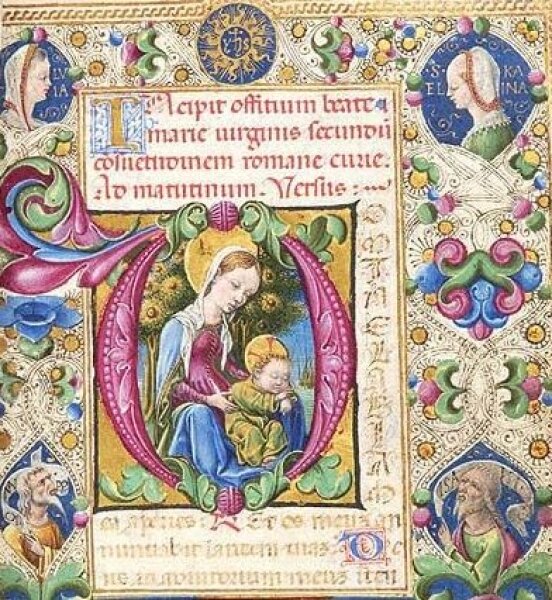 yhs
LV
IA
S · KA
EL INA
INcipit offitium beate
marie uirginis secundū
cōsuetudinem romane curie.
Ad matutinum. Versus:
D OMINE LABIA
mea aperies: R Et os meuz an
nuntiabit laudem tuaz. De
us in adiutorium meuz